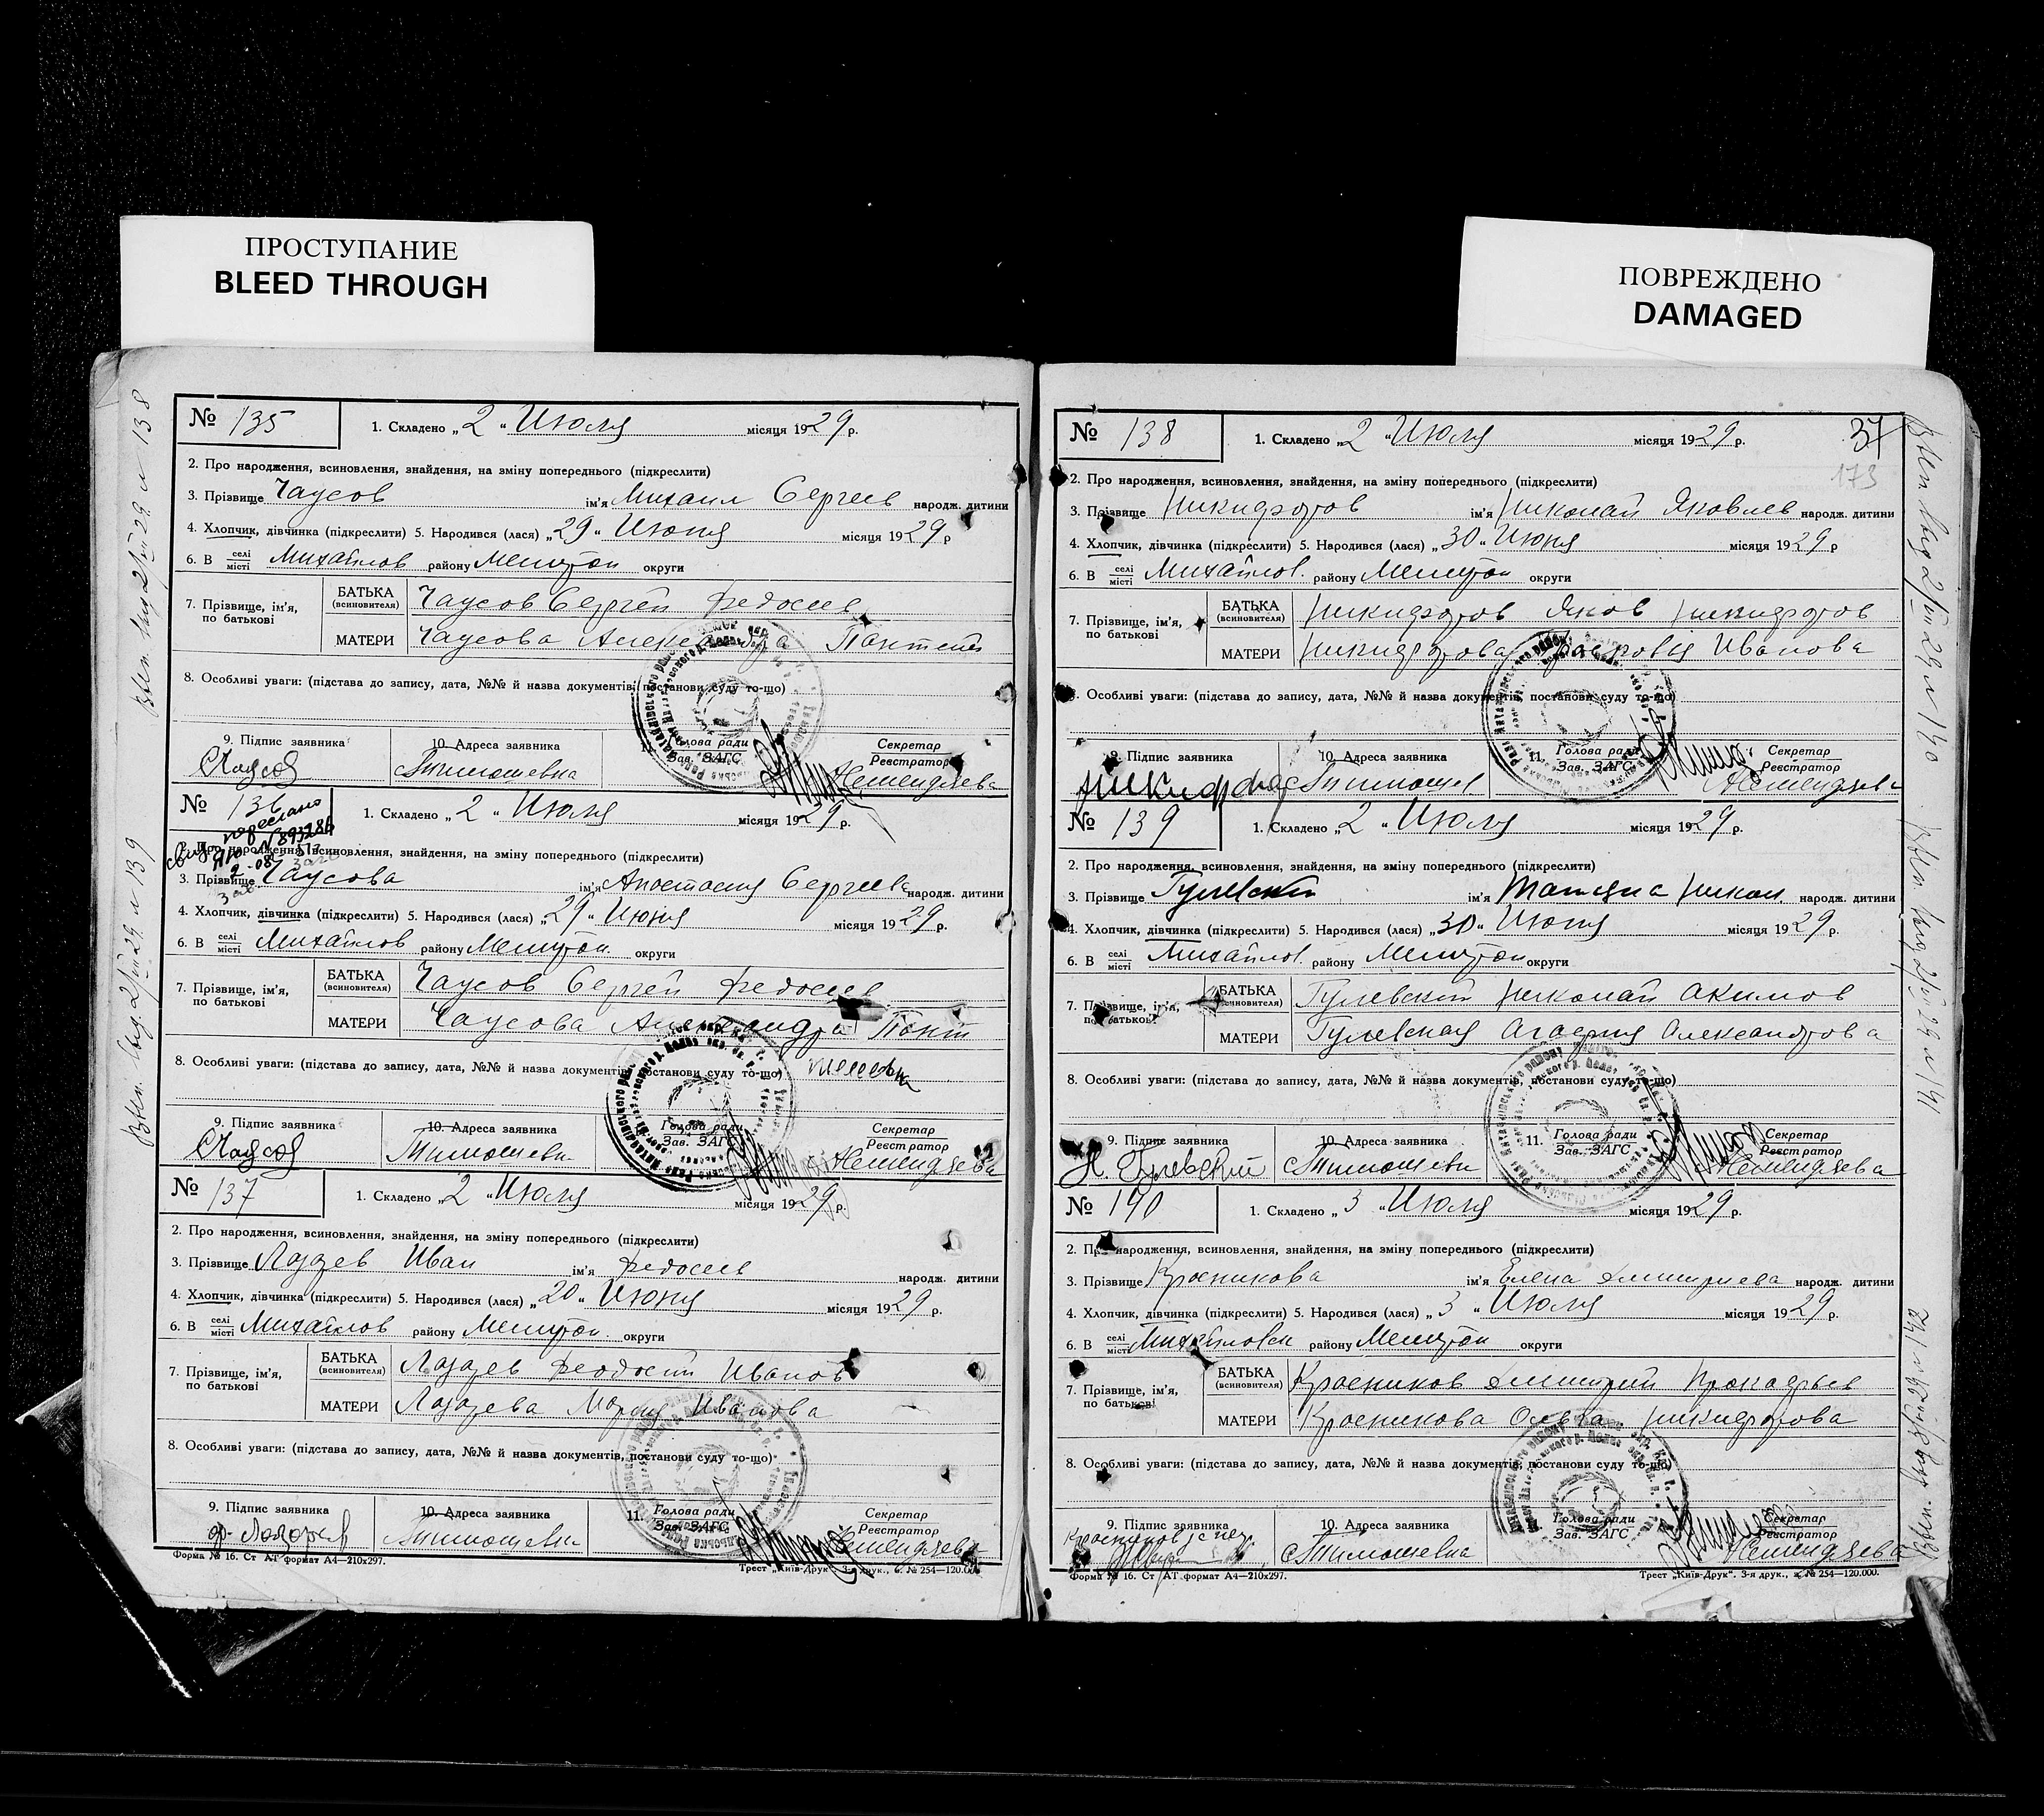 ПРОСТУПАНИЕ
BLEED THROUGH
№ 135 1. Складено „2" Июля місяця 1929 р.
2. Про народження, всиновлення, знайдення, на зміну попереднього (підкреслити)
3. Прізвище Чаусов ім'я Михаил Сергеев народж. дитини
4. Хлопчик, дівчинка (підкреслити) 5. Народився (лася) „29" Июня місяця 1929 р
6. В селі місті Михайлов району Мелитоп округи
7. Прізвище, ім'я, по батькові
БАТЬКА (всиновителя) Чаусов Сергей Федосеев
МАТЕРИ Чаусова Александра
8. Особливі уваги: (підстава до запису, дата, №№ й назва документів, постанови суду то-що)
9. Підпис заявника 10. Адреса заявника Голова ради Зав. ЗАГС Секретар Реєстратор
СЧаусов Тимошевка
№ 136 1. Складено „2" Июля місяця 1929 р.
2. Про народження, всиновлення, знайдення, на зміну попереднього (підкреслити)
3. Прізвище Чаусова ім'я Анастасия Сергеев народж. дитини
4. Хлопчик, дівчинка (підкреслити) 5. Народився (лася) „29" Июня місяця 1929 р.
6. В селі місті Михайлов району Мелитоп. округи
7. Прізвище, ім'я, по батькові
БАТЬКА (всиновителя) Чаусов Сергей Федосеев
МАТЕРИ Чаусова Александра Пант
8. Особливі уваги: (підстава до запису, дата, №№ й назва документів, постанови суду то-що)
9. Підпис заявника 10. Адреса заявника Голова ради Зав. ЗАГС Секретар Реєстратор
СЧаусов Тимошевк
№ 137 1. Складено „2" Июля місяця 1929 р.
2. Про народження, всиновлення, знайдення, на зміну попереднього (підкреслити)
3. Прізвище Лазарев Иван ім'я Федосеев народж. дитини
4. Хлопчик, дівчинка (підкреслити) 5. Народився (лася) „20" Июня місяця 1929 р.
6. В селі місті Михайлов району Мелитоп. округи
7. Прізвище, ім'я, по батькові
БАТЬКА (всиновителя) Лазарев Феодосий Иванов
МАТЕРИ Лазарева Мария Иванова
8. Особливі уваги: (підстава до запису, дата, №№ й назва документів, постанови суду то-що)
9. Підпис заявника 10. Адреса заявника 11. Голова ради Зав. ЗАГС Секретар Реєстратор
ф. Лазарев Тимошевк
Форма № 16. Ст АТ формат А4—210х297. Трест „Київ-Друк" 3-я друк., № 254—120.000.
ПОВРЕЖДЕНО
DAMAGED
37
173
№ 138 1. Складено „2" Июля місяця 1929 р.
2. Про народження, всиновлення, знайдення, на зміну попереднього (підкреслити)
3. Прізвище Никифоров ім'я Николай Яковлев народж. дитини
4. Хлопчик, дівчинка (підкреслити) 5. Народився (лася) „30" Июня місяця 1929 р
6. В селі місті Михайлов. району Мелитоп округи
7. Прізвище, ім'я, по батькові
БАТЬКА (всиновителя) Никифоров Яков Никифоров
МАТЕРИ Никифорова Иванова
8. Особливі уваги: (підстава до запису, дата, №№ й назва документів, постанови суду то-що)
9. Підпис заявника 10. Адреса заявника 11. Голова ради Зав. ЗАГС Секретар Реєстратор
Тимошев
№ 139 1. Складено „2" Июля місяця 1929 р.
2. Про народження, всиновлення, знайдення, на зміну попереднього (підкреслити)
3. Прізвище Гулевский ім'я Татьяна Никол. народж. дитини
4. Хлопчик, дівчинка (підкреслити) 5. Народився (лася) „30" Июня місяця 1929 р.
6. В селі місті Михайлов. району Мелитоп округи
7. Прізвище, ім'я, по батькові
БАТЬКА (всиновителя) Гулевский Николай Акимов
МАТЕРИ Гулевская Александрова
8. Особливі уваги: (підстава до запису, дата, №№ й назва документів, постанови суду то-що)
9. Підпис заявника 10. Адреса заявника 11. Голова ради Зав. ЗАГС Секретар Реєстратор
Н. Гулевский Тимошевк
№ 140 1. Складено „3" Июля місяця 1929 р.
2. Про народження, всиновлення, знайдення, на зміну попереднього (підкреслити)
3. Прізвище Красникова ім'я Елена Дмитриева народж. дитини
4. Хлопчик, дівчинка (підкреслити) 5. Народився (лася) „3" Июля місяця 1929 р.
6. В селі місті Михайловск району Мелитоп округи
7. Прізвище, ім'я, по батькові
БАТЬКА (всиновителя) Красников Дмитрий Прокофьев
МАТЕРИ Красникова Ольга Никифорова
8. Особливі уваги: (підстава до запису, дата, №№ й назва документів, постанови суду то-що)
9. Підпис заявника 10. Адреса заявника Голова ради Зав. ЗАГС Секретар Реєстратор
Тимошевка
Форма № 16. Ст АТ формат А4—210х297. Трест „Київ-Друк". 3-я друк., № 254—120.000.